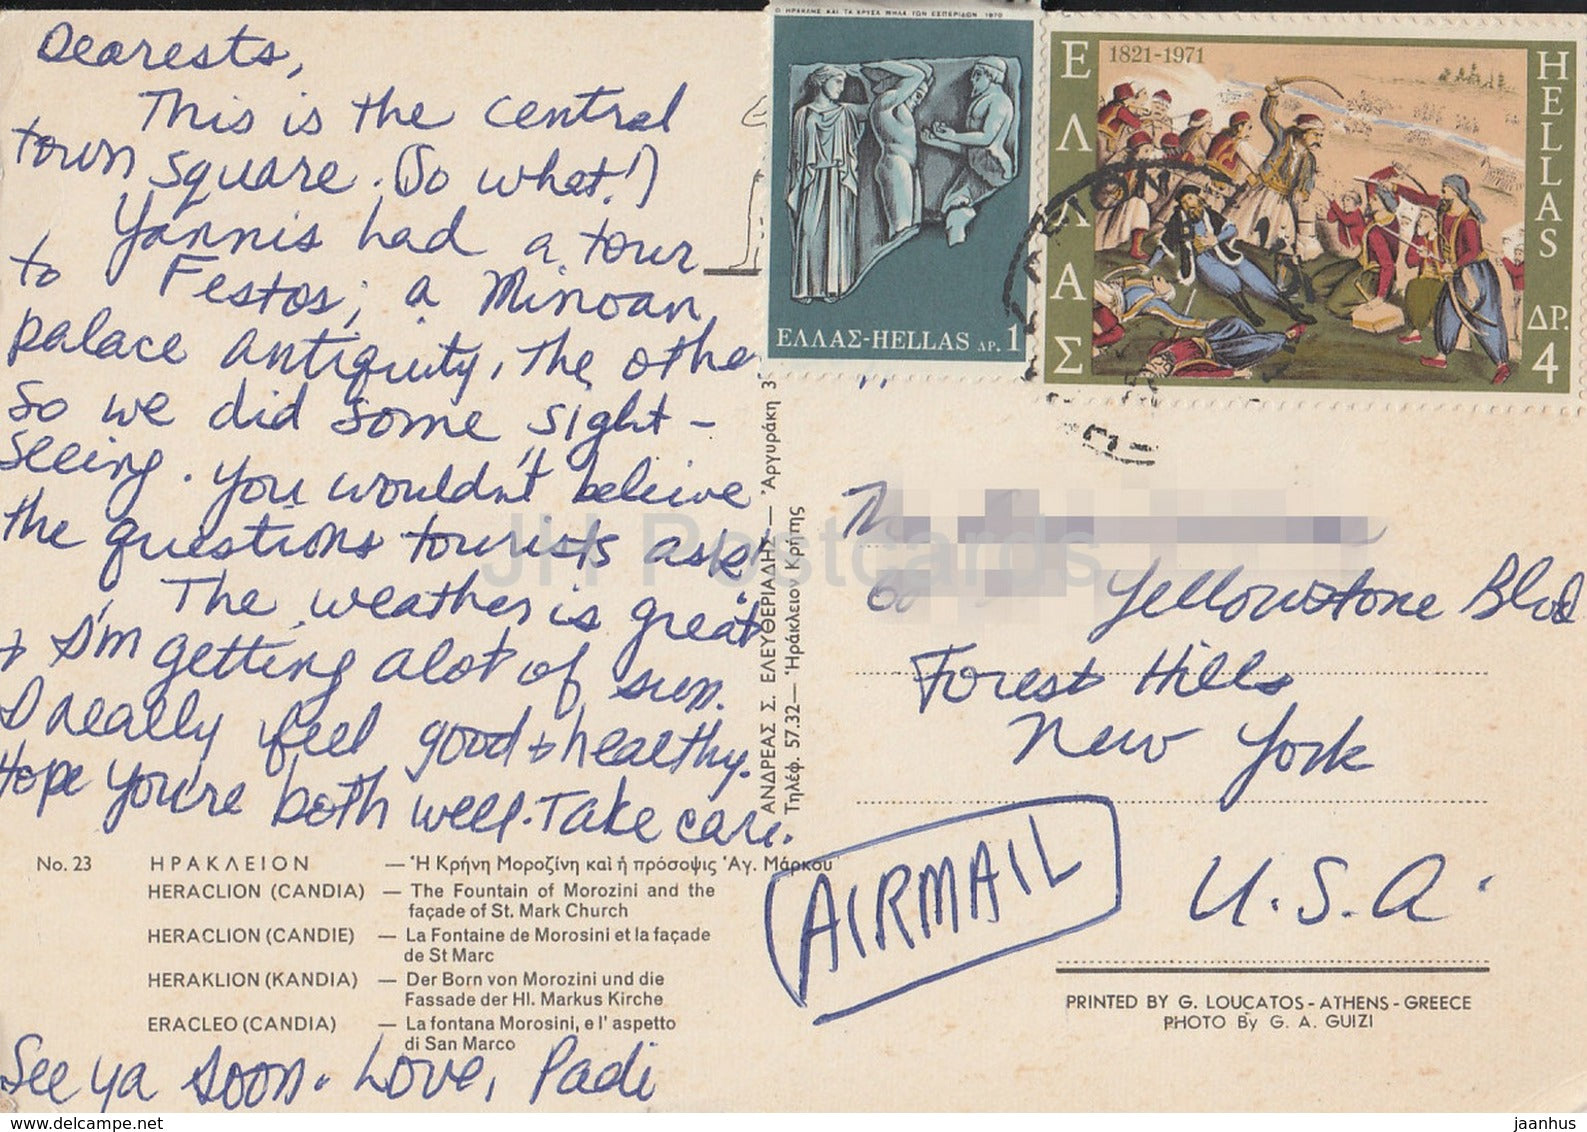 Dearests,
This is the central
town square. (So what!)
Yannis had a tour
to Festos; a Minoan
palace antiquity, the othe
so we did some sight-
seeing. You wouldn't believe
the questions tourists ask!
The weather is great
+ I'm getting alot of sun.
I really feel good + healthy.
Hope you're both well. Take care.
No. 23 ΗΡΑΚΛΕΙΟΝ — Ἡ Κρήνη Μοροζίνη καὶ ἡ πρόσοψις Ἁγ. Μάρκου
HERACLION (CANDIA) — The Fountain of Morozini and the
façade of St. Mark Church
HERACLION (CANDIE) — La Fontaine de Morosini et la façade
de St Marc
HERAKLION (KANDIA) — Der Born von Morozini und die
Fassade der Hl. Markus Kirche
ERACLEO (CANDIA) — La fontana Morosini, e l' aspetto
di San Marco
See ya soon. Love, Padi
ΑΝΔΡΕΑΣ Σ. ΕΛΕΥΘΕΡΙΑΔΗΣ — Ἀργυράκη 3
Τηλέφ. 57.32 — Ἡράκλειον Κρήτης
Ο ΗΡΑΚΛΗΣ ΚΑΙ ΤΑ ΧΡΥΣΑ ΜΗΛΑ ΤΩΝ ΕΣΠΕΡΙΔΩΝ 1970
ΕΛΛΑΣ-HELLAS ΔΡ. 1
1821-1971
ΕΛΛΑΣ
HELLAS
ΔΡ.
4
JH Postcards
Yellowstone Blvd
Forest Hills
New York
U.S.A.
AIRMAIL
PRINTED BY G. LOUCATOS - ATHENS - GREECE
PHOTO By G. A. GUIZI
www.delcampe.net
jaanhus